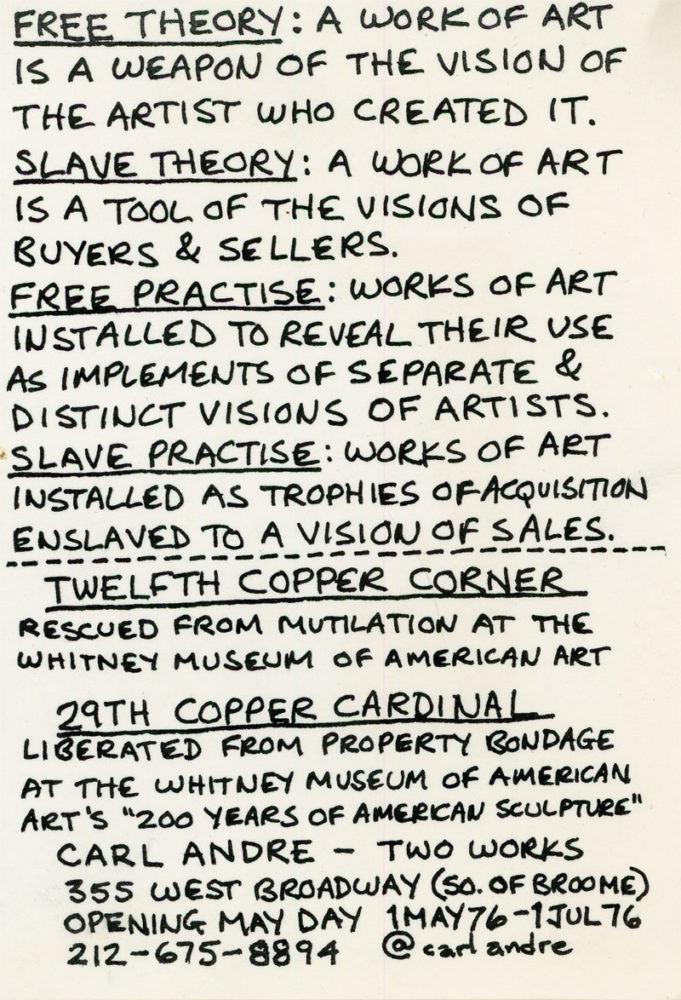 FREE THEORY: A WORK OF ART
IS A WEAPON OF THE VISION OF
THE ARTIST WHO CREATED IT.
SLAVE THEORY: A WORK OF ART
IS A TOOL OF THE VISIONS OF
BUYERS & SELLERS.
FREE PRACTISE: WORKS OF ART
INSTALLED TO REVEAL THEIR USE
AS IMPLEMENTS OF SEPARATE &
DISTINCT VISIONS OF ARTISTS.
SLAVE PRACTISE: WORKS OF ART
INSTALLED AS TROPHIES OF ACQUISITION
ENSLAVED TO A VISION OF SALES.
TWELFTH COPPER CORNER
RESCUED FROM MUTILATION AT THE
WHITNEY MUSEUM OF AMERICAN ART
29TH COPPER CARDINAL
LIBERATED FROM PROPERTY BONDAGE
AT THE WHITNEY MUSEUM OF AMERICAN
ART'S "200 YEARS OF AMERICAN SCULPTURE"
CARL ANDRE - TWO WORKS
355 WEST BROADWAY (SO. OF BROOME)
OPENING MAY DAY 1MAY76-1JUL76
212-675-8894 @ carl andre